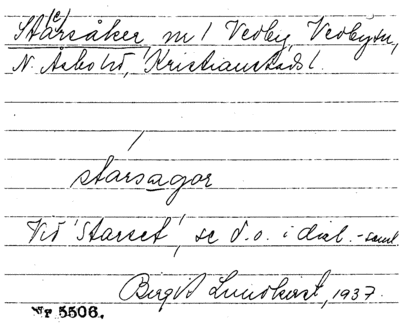 St(e)arsåker, m 1 Vedby, Vedby sn,
N. Åsbo hd, Kristianstads l.
starsagor
Vid 'Starset', se d.o. i dial.-saml
Birgit Lundkvist, 1937.
Nr 5506.